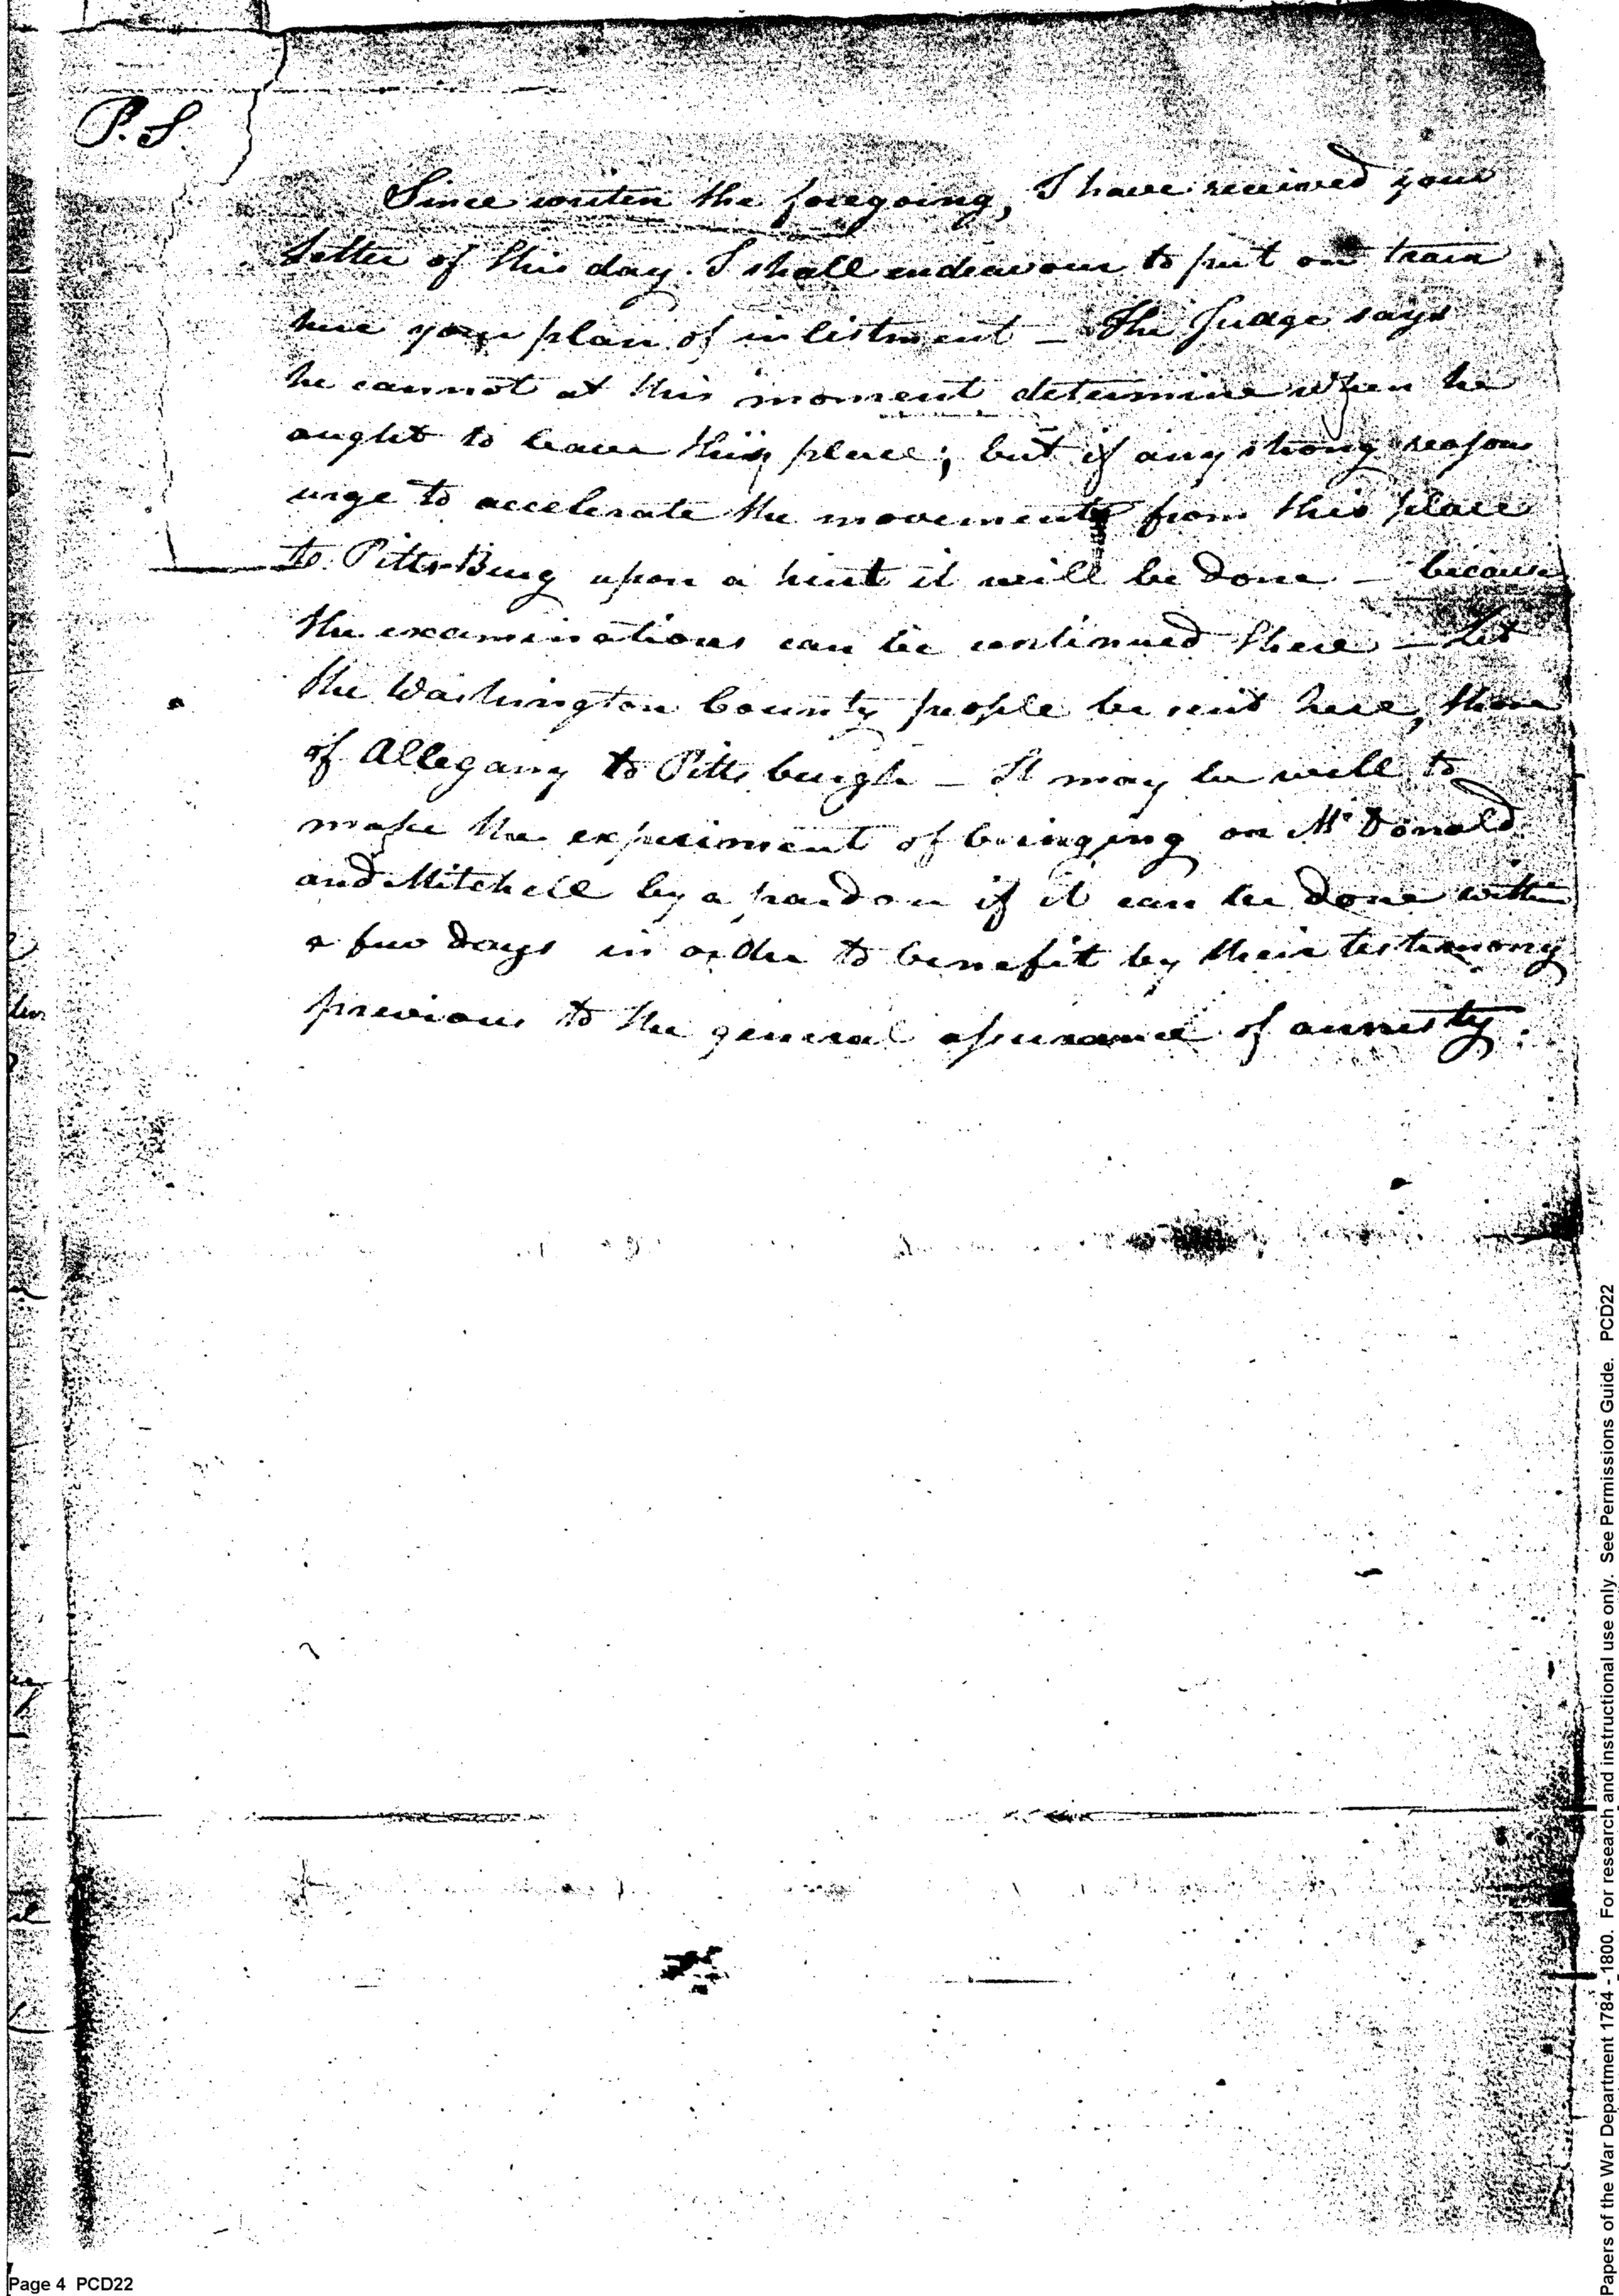 P.S.
Since writen the foregoing, I have received your
letter of this day. I shall endeavour to put on train
here your plan of inlistment – The Judge says
he cannot at this moment determine when he
ought to leave this place; but if any strong reasons
urge to accelerate the movements from this place
to Pitts-Burg upon a hint it will be done – because
the examinations can be continued there – Let
the Washington County people be sent here, those
of Allegany to Pittsburgh – It may be well to
make the experiment of bringing on McDonald
and Mitchell by a pardon if it can be done within
a few days in order to benefit by their testimony
previous to the general assurance of amnesty.
Page 4 PCD22
Papers of the War Department 1784 - 1800. For research and instructional use only. See Permissions Guide. PCD22